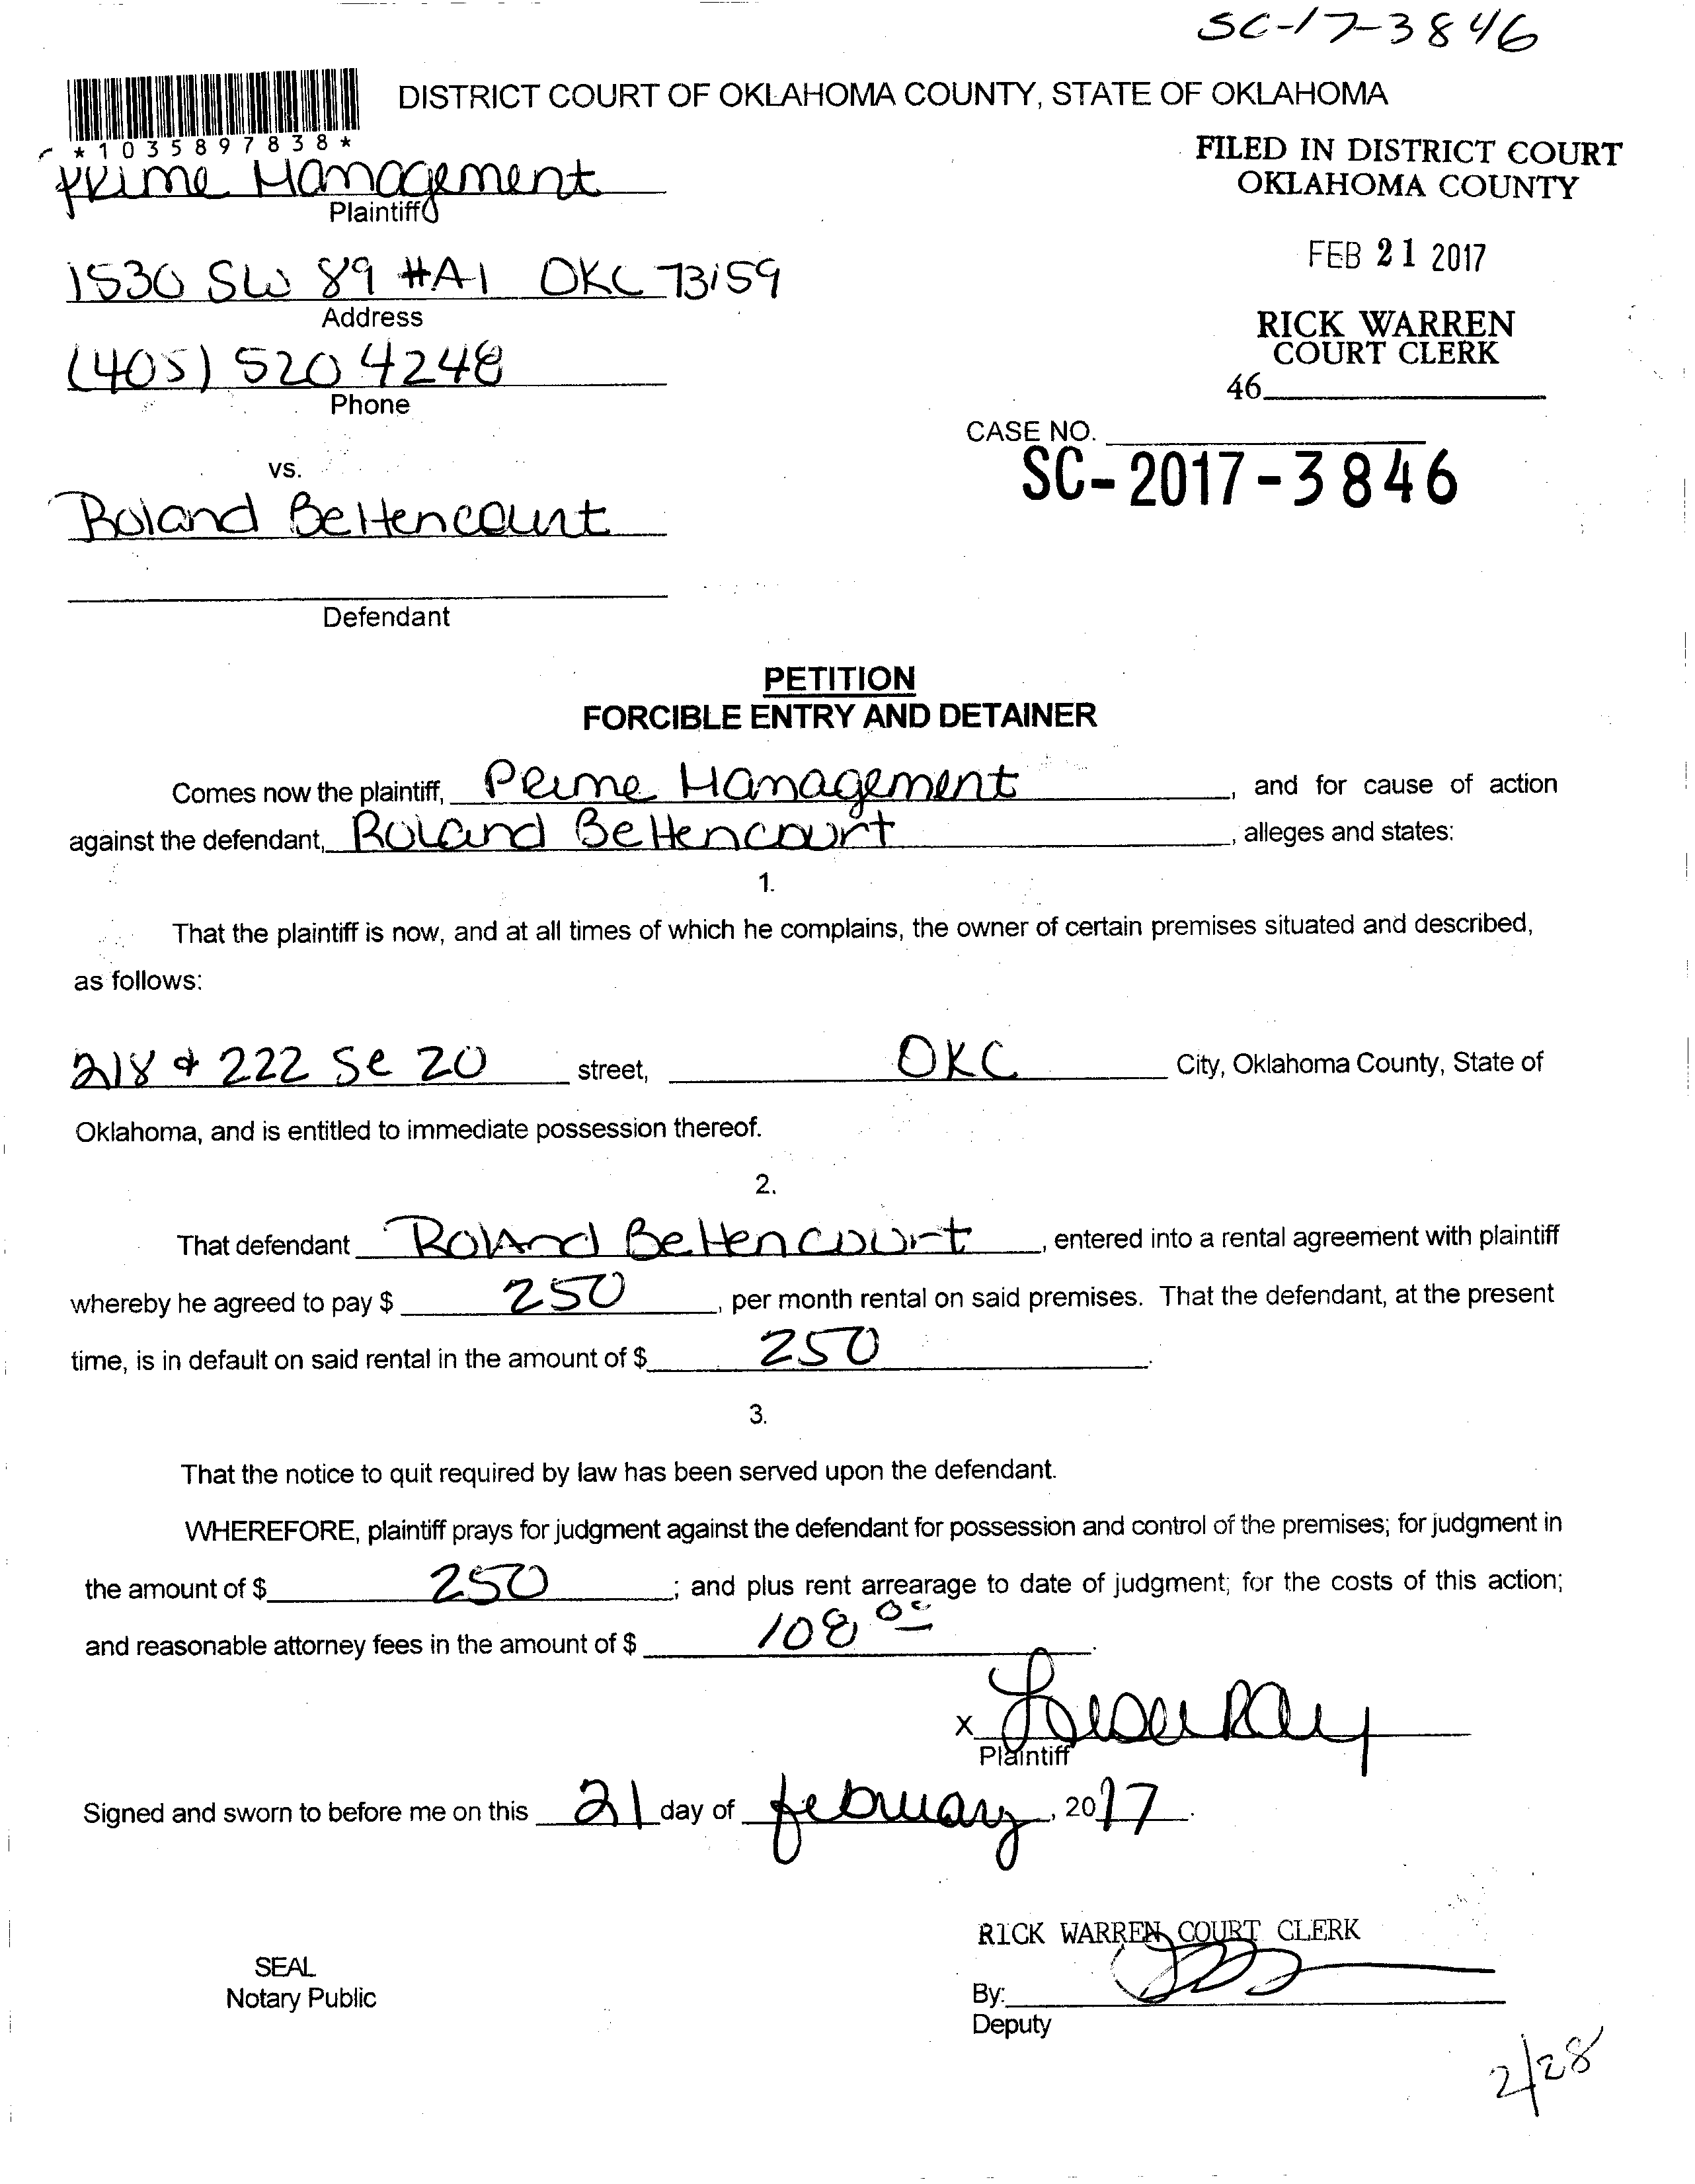 SC-17-3846
DISTRICT COURT OF OKLAHOMA COUNTY, STATE OF OKLAHOMA
*1035897838*
FILED IN DISTRICT COURT
OKLAHOMA COUNTY
Prime Management
Plaintiff
FEB 21 2017
1530 SW 89 #A1 OKC 73159
Address
RICK WARREN
COURT CLERK
(405) 520 4248
Phone
46
CASE NO.
SC-2017-3846
vs.
Roland Bettencourt
Defendant
PETITION
FORCIBLE ENTRY AND DETAINER
Comes now the plaintiff, Prime Management, and for cause of action
against the defendant, Roland Bettencourt, alleges and states:
1.
That the plaintiff is now, and at all times of which he complains, the owner of certain premises situated and described,
as follows:
218 & 222 Se 20 street, OKC City, Oklahoma County, State of
Oklahoma, and is entitled to immediate possession thereof.
2.
That defendant Roland Bettencourt, entered into a rental agreement with plaintiff
whereby he agreed to pay $ 250, per month rental on said premises. That the defendant, at the present
time, is in default on said rental in the amount of $ 250.
3.
That the notice to quit required by law has been served upon the defendant.
WHEREFORE, plaintiff prays for judgment against the defendant for possession and control of the premises; for judgment in
the amount of $ 250; and plus rent arrearage to date of judgment; for the costs of this action;
and reasonable attorney fees in the amount of $ 108 00.
X
Plaintiff
Signed and sworn to before me on this 21 day of february, 2017.
RICK WARREN COURT CLERK
SEAL
Notary Public
By:
Deputy
2/28